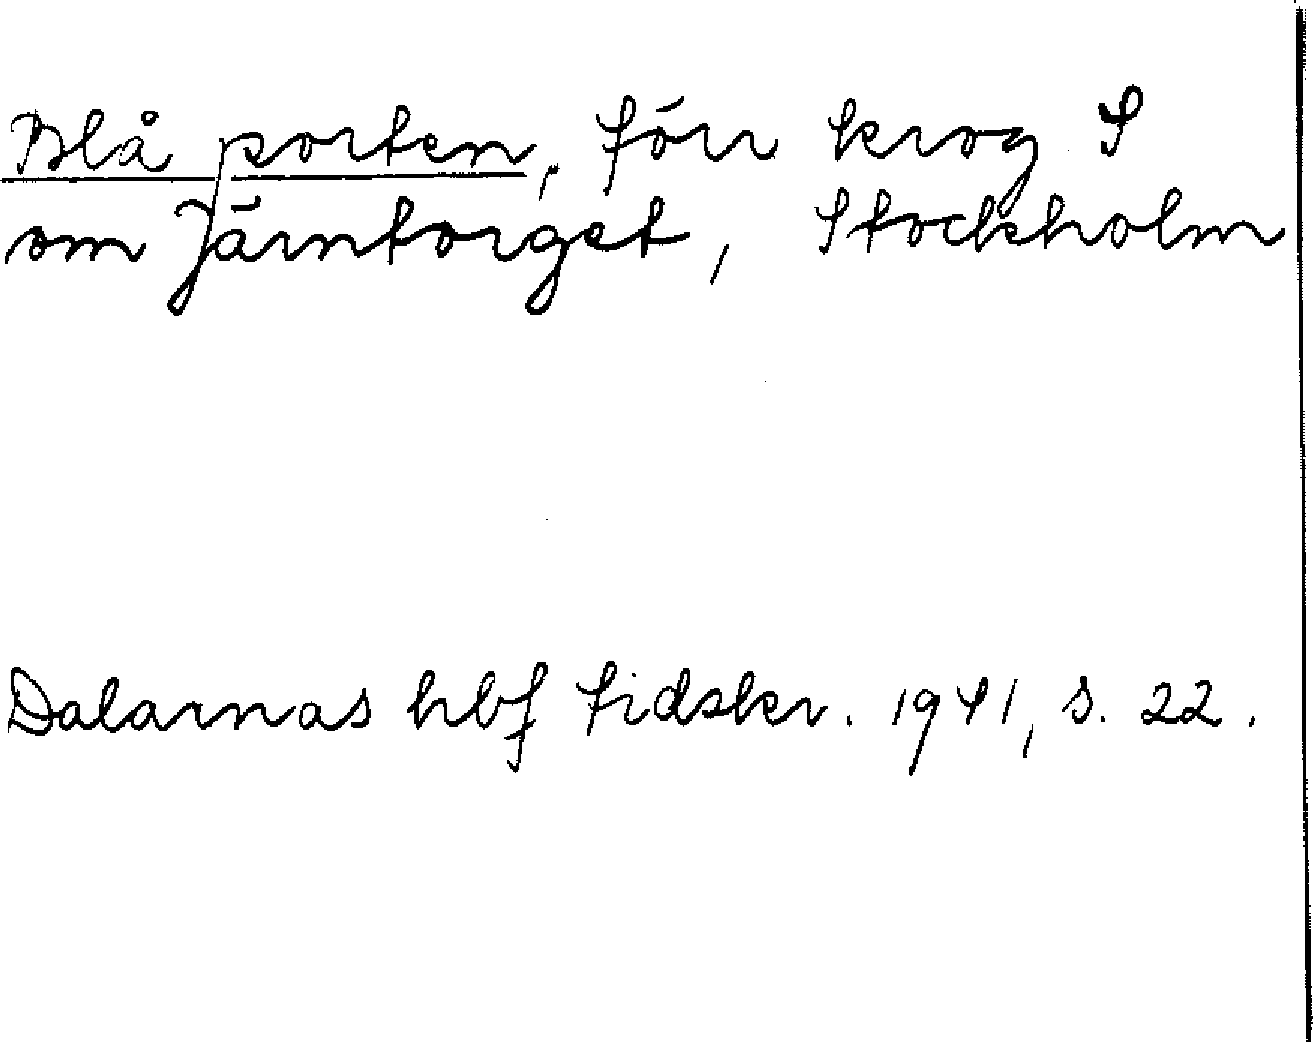 Blå porten, förr krog S
om Järntorget, Stockholm
Dalarnas hbf tidskr. 1941, s. 22.